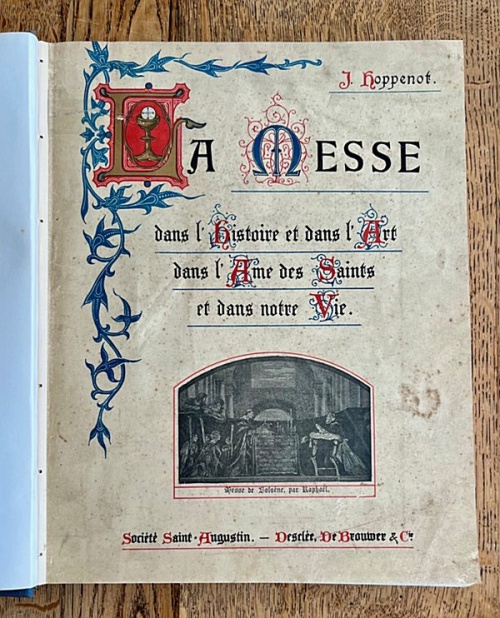 J. Hoppenot.
La Messe
dans l'Histoire et dans l'Art
dans l'Ame des Saints
et dans notre Vie.
Messe de Bolsène, par Raphaël.
Société Saint-Augustin. — Desclée, De Brouwer & Cie